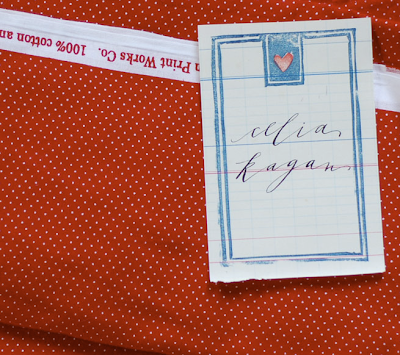 n Print Works Co. 100% cotton an
celia
kagan